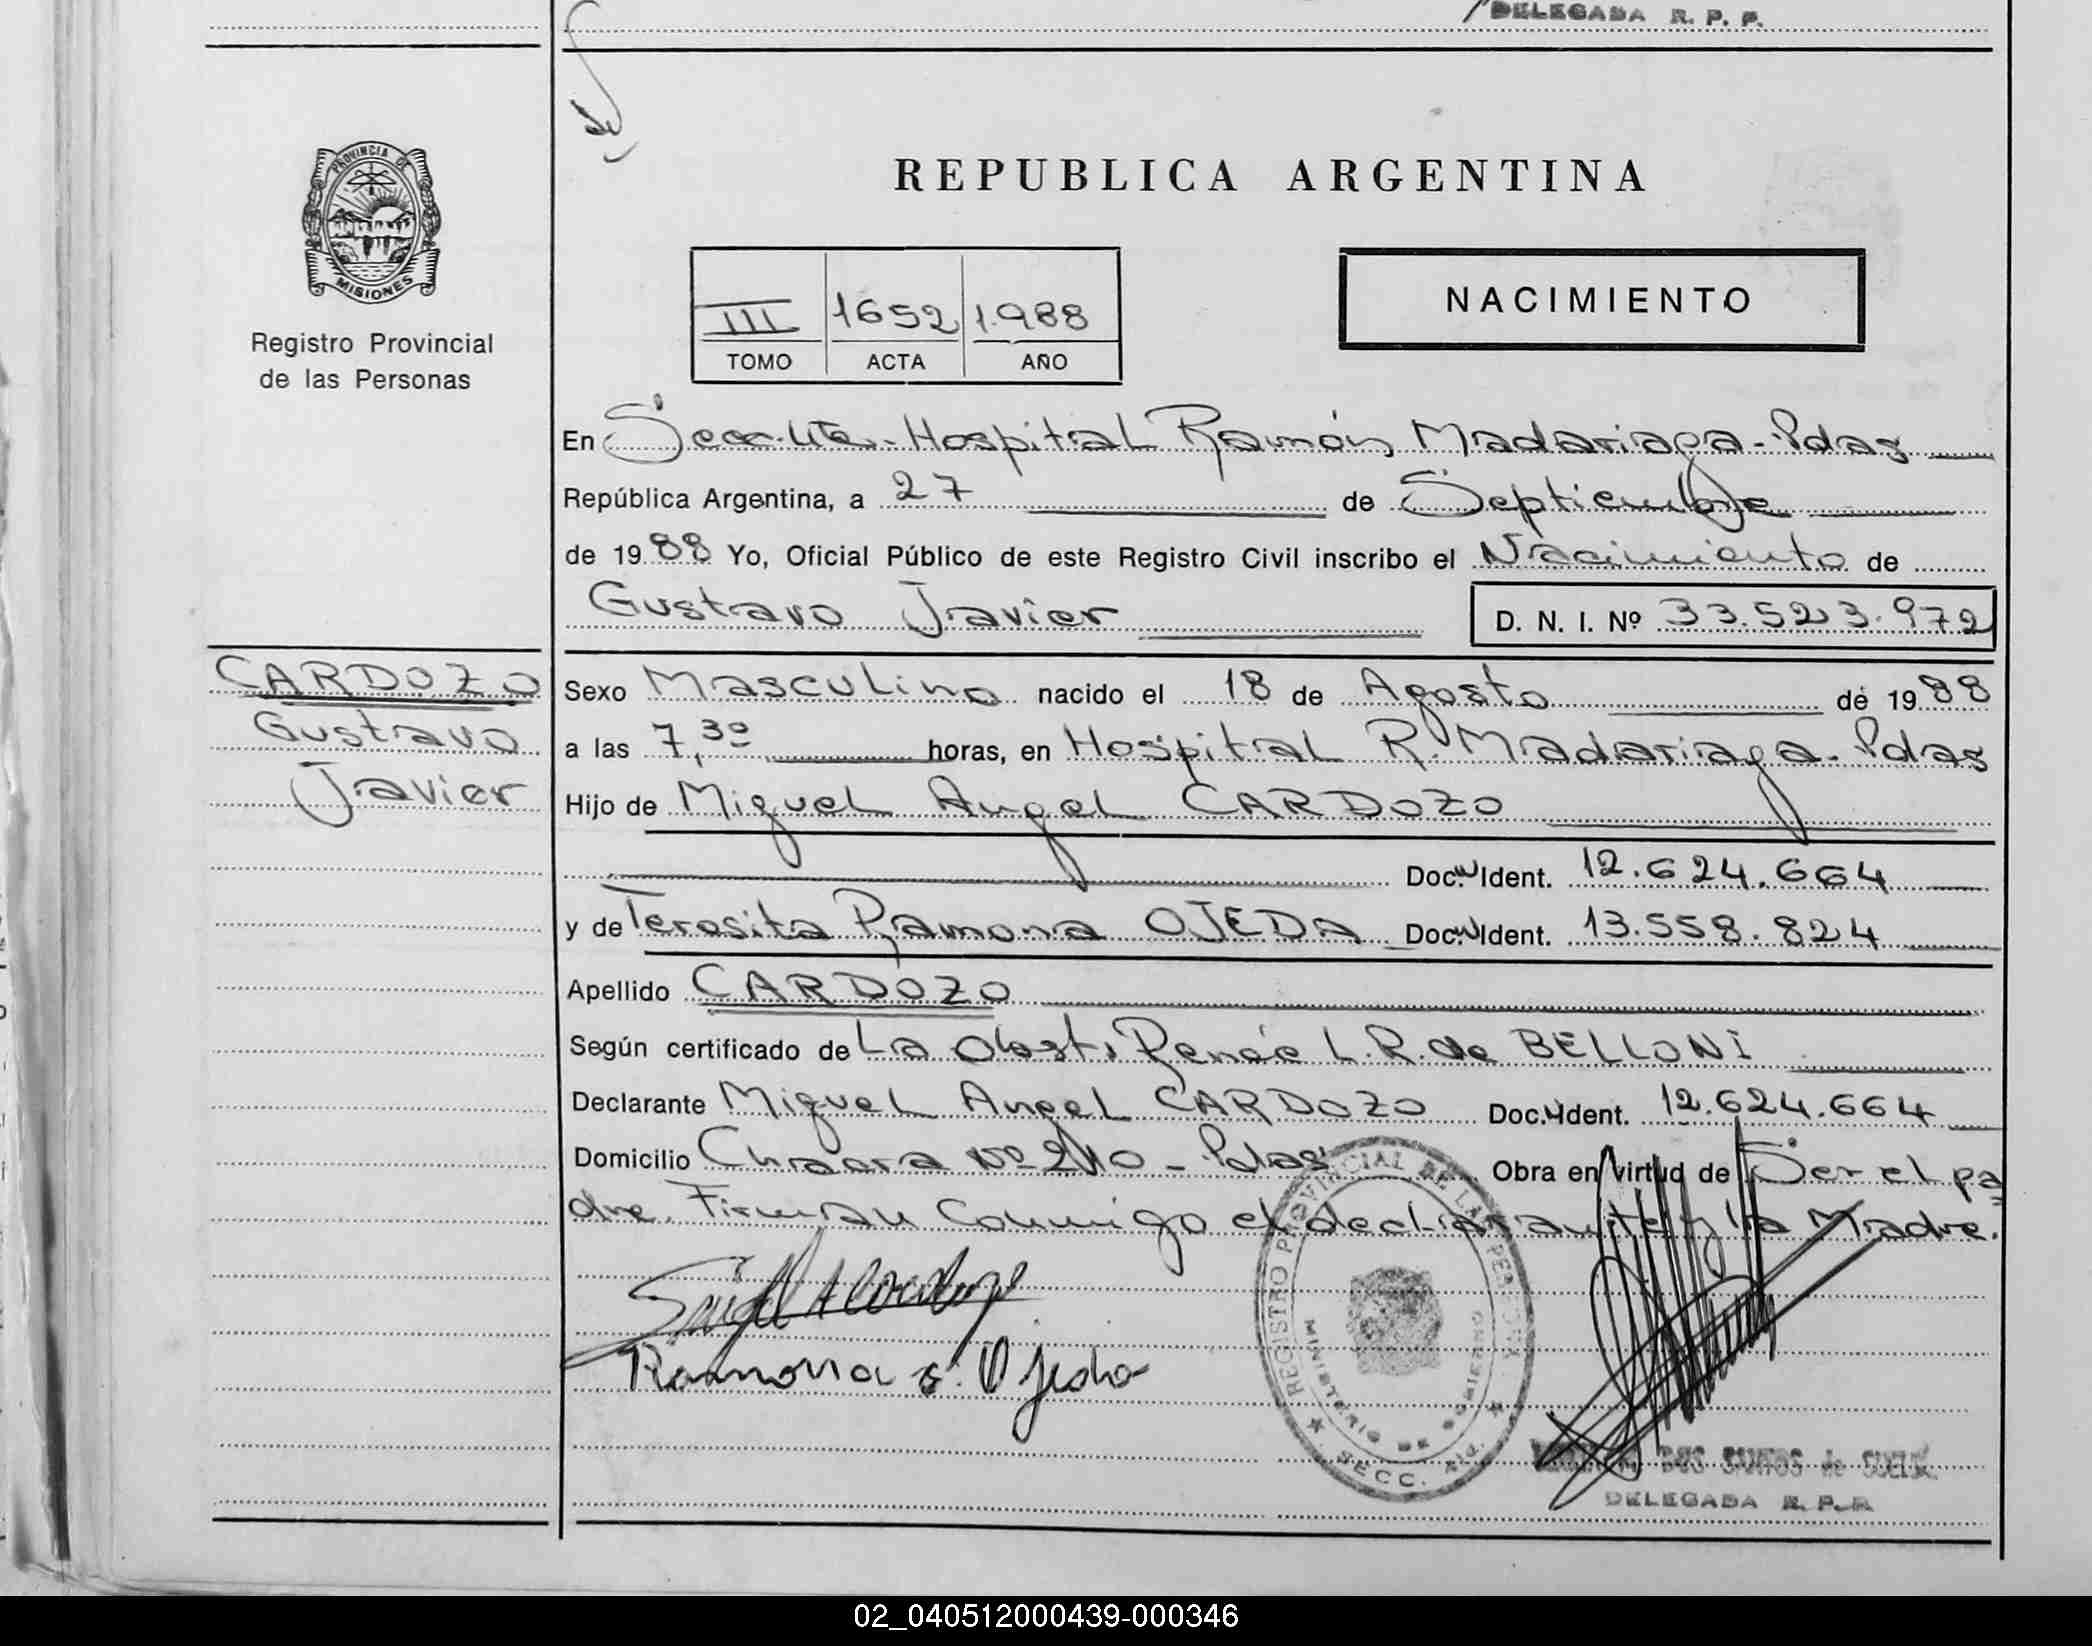 DELEGADA R. P. P.
PROVINCIA DE
MISIONES
Registro Provincial
de las Personas
REPUBLICA ARGENTINA
III 1652 1.988
TOMO ACTA AÑO
NACIMIENTO
En Secc. 4ta.-Hospital Ramón Madariaga-Pdas
República Argentina, a 27 de Septiembre
de 1988 Yo, Oficial Público de este Registro Civil inscribo el Nacimiento de
Gustavo Javier D. N. I. Nº 33.523.972
CARDOZO
Gustavo
Javier
Sexo Masculino nacido el 18 de Agosto de 1988
a las 7,30 horas, en Hospital R. Madariaga-Pdas
Hijo de Miguel Angel CARDOZO
Doc. Ident. 12.624.664
y de Teresita Ramona OJEDA Doc. Ident. 13.558.824
Apellido CARDOZO
Según certificado de La Obst. Renée L.R. de BELLONI
Declarante Miguel Angel CARDOZO Doc. Ident. 12.624.664
Domicilio Chacra Nº - Pdas Obra en virtud de Ser el pa
dre. Firman Conmigo el declarante y la Madre.
Ramona s. Ojeda
REGISTRO PROVINCIAL DE LAS PERSONAS
MINISTERIO DE GOBIERNO
SECC. 4ta.
DOS SANTOS de
DELEGADA R. P. P.
02_040512000439-000346